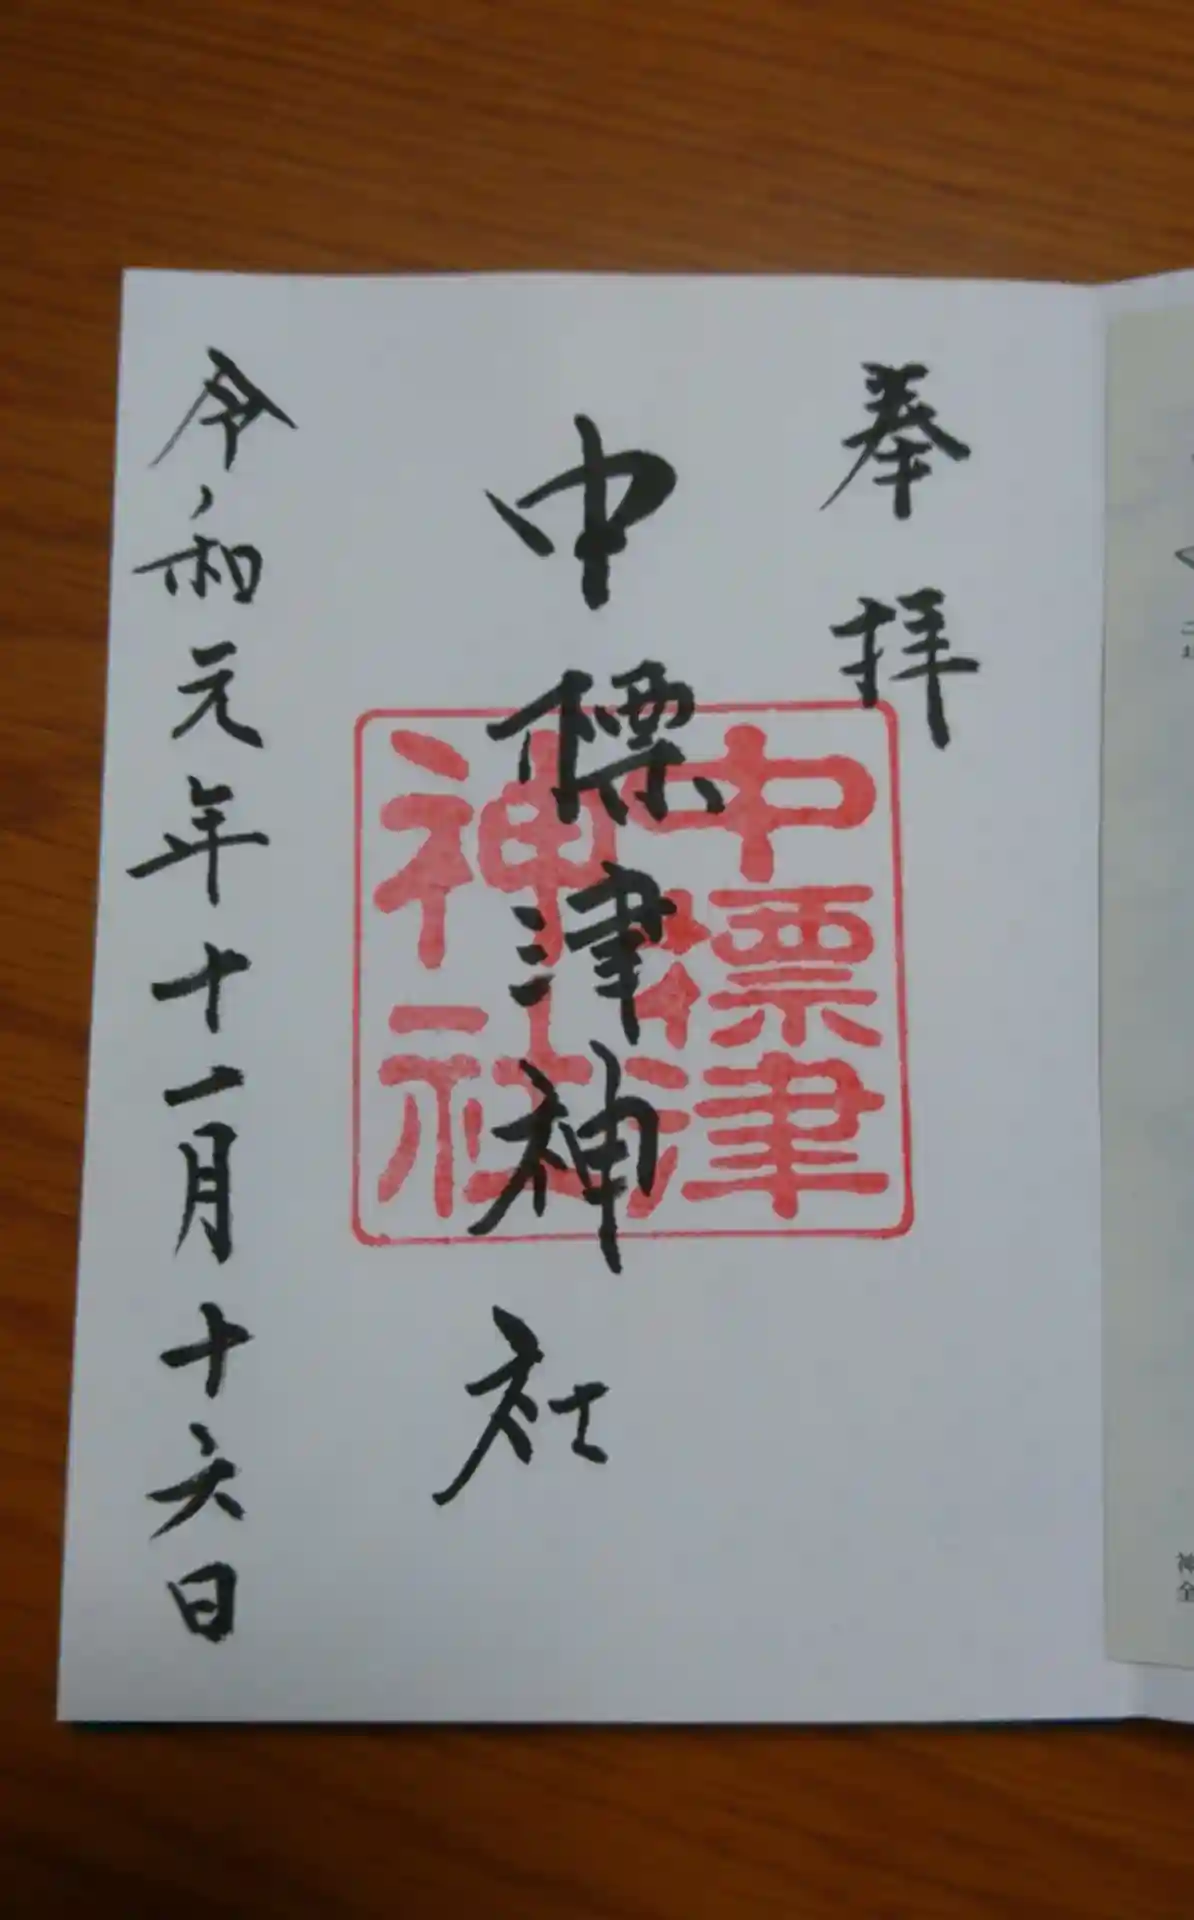 奉拝
中標津神社
中標津
神社
令和元年十一月十六日
神
全